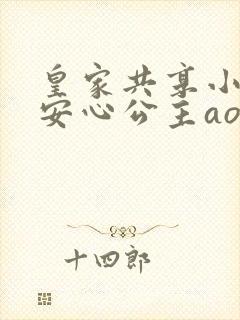 皇家共享小
安心公主ao
十四郎